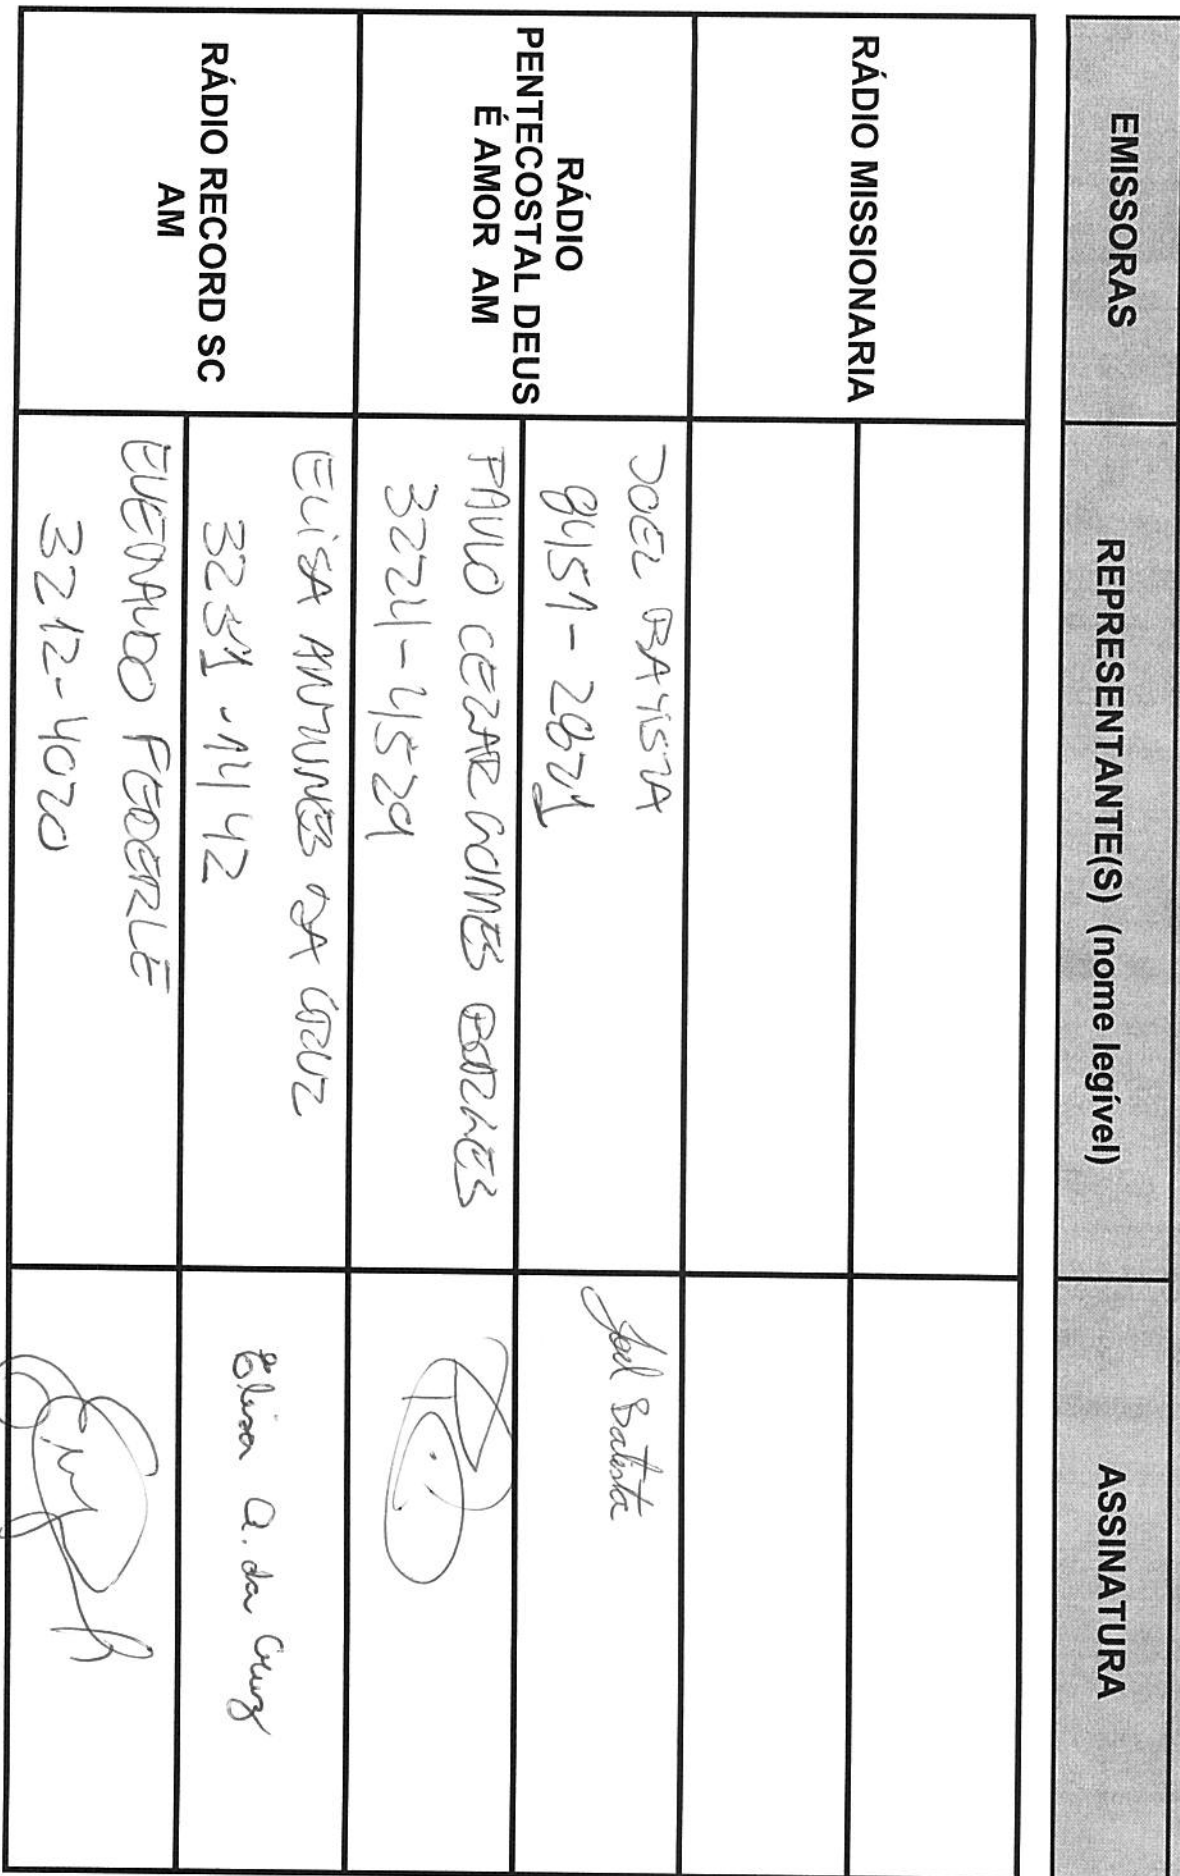 EMISSORAS
REPRESENTANTE(S) (nome legível)
ASSINATURA
RÁDIO MISSIONARIA
RÁDIO
PENTECOSTAL DEUS
É AMOR AM
JOEL BATISTA
8451-2871
Joel Batista
PAULO CEZAR GOMES BORGES
3224-4529
RÁDIO RECORD SC
AM
ELISA ANTUNES DA CRUZ
3231-1442
Elisa A. da Cruz
EVERALDO FEDERLE
3212-4020